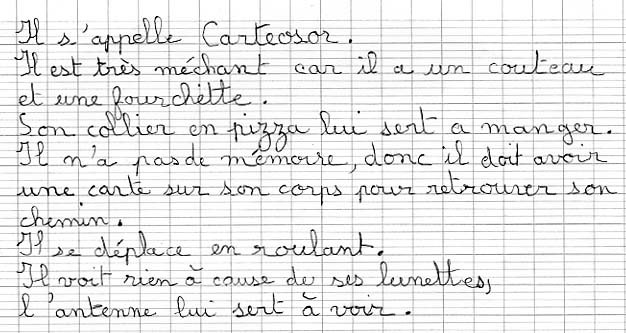 Il s'appelle Carteosor.
Il est très méchant car il a un couteau
et une fourchette.
Son collier en pizza lui sert a manger.
Il n'a pas de mémoire, donc il doit avoir
une carte sur son corps pour retrouver son
chemin.
Il se déplace en roulant.
Il voit rien à cause de ses lunettes,
l'antenne lui sert à voir.